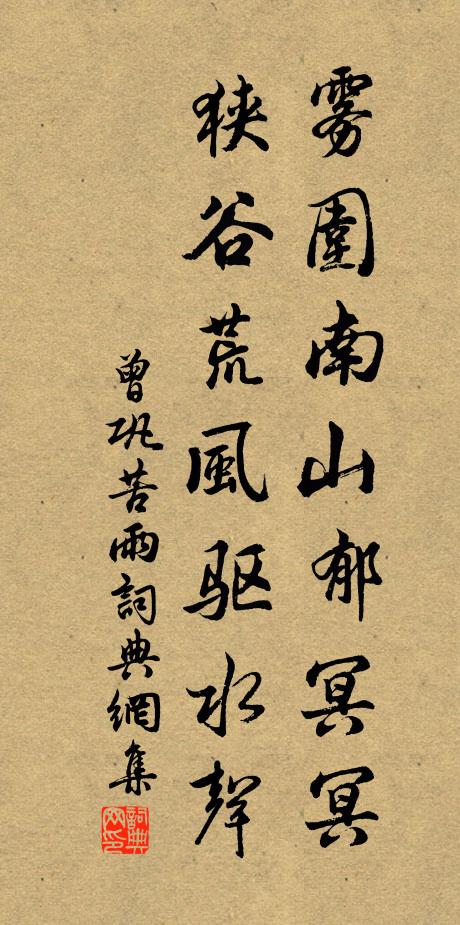 雾圍南山郁冥冥
狭谷荒風驱水聲
曾巩苦雨詞典網集
詞典
网印